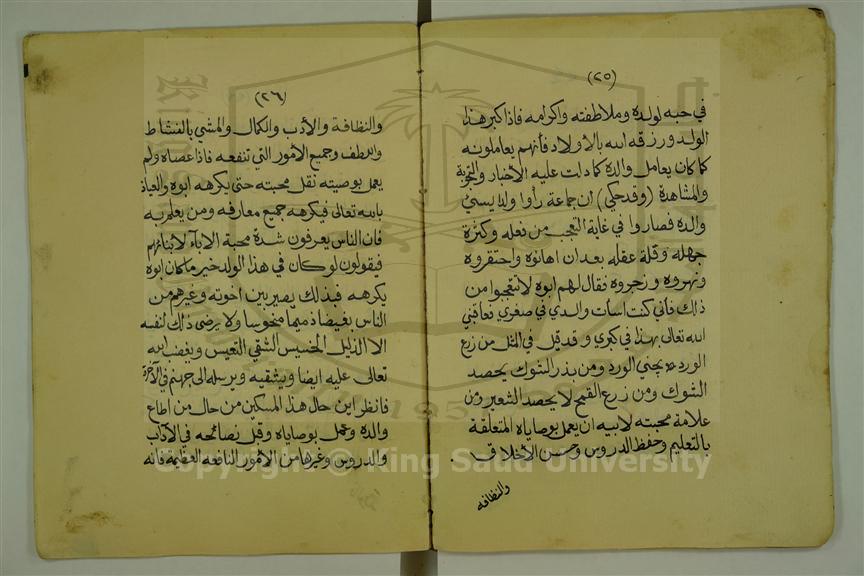 (٢٥)
في حبه لولده وملاطفته واكرامه فاذا كبر هذا
الولد ورزقه الله بالاولاد فأنهم يعاملونه
كما كان يعامل والده كما دلت عليه الأخبار والتجربة
والمشاهدة (وقد حكي) ان جماعة رأوا ولدا يسئ
والده فصاروا في غاية التعجب من فعله وكثرة
جهله وقلة عقله بعد ان اهانوه واحتقروه
ونهروه وزجروه فقال لهم ابوه لا تتعجبوا من
ذلك فأني كنت اسأت والدي في صغري فعاقبني
الله تعالى بهذا في كبري وقد قيل في المثل من زرع
الورد يجني الورد ومن بذر الشوك يحصد
الشوك ومن زرع القمح لا يحصد الشعير ومن
علامة محبته لابيه ان يعمل بوصاياه المتعلقة
بالتعليم وحفظ الدروس وحسن الأخلاق
والنظافه
(٢٦)
والنظافة والأدب والكمال والمشي بالنشاط
واللطف وجميع الأمور التي تنفعه فاذا عصاه ولم
يعمل بوصيته تقل محبته حتى يكرهه ابوه والعياذ
بالله تعالى فيكرهه جميع معارفه ومن يعلم به
فان الناس يعرفون شدة محبة الاباء لأبنائهم
فيقولون لو كان في هذا الولد خير ما كان ابوه
يكرهه فبذلك يصير بين اخوته وغيرهم من
الناس بغيضا ذميما منحوسا ولا يرضى ذلك لنفسه
الا الذليل الخسيس الشقي التعيس ويغضب الله
تعالى عليه ايضا ويشقيه ويرسله الى جهنم في الآخرة
فانظر اين حال هذا المسكين من حال من اطاع
والده وعمل بوصاياه وقبل نصائحه في الآداب
والدروس وغيرها من الأمور النافعه العظيمة فانه
Copyright © King Saud University